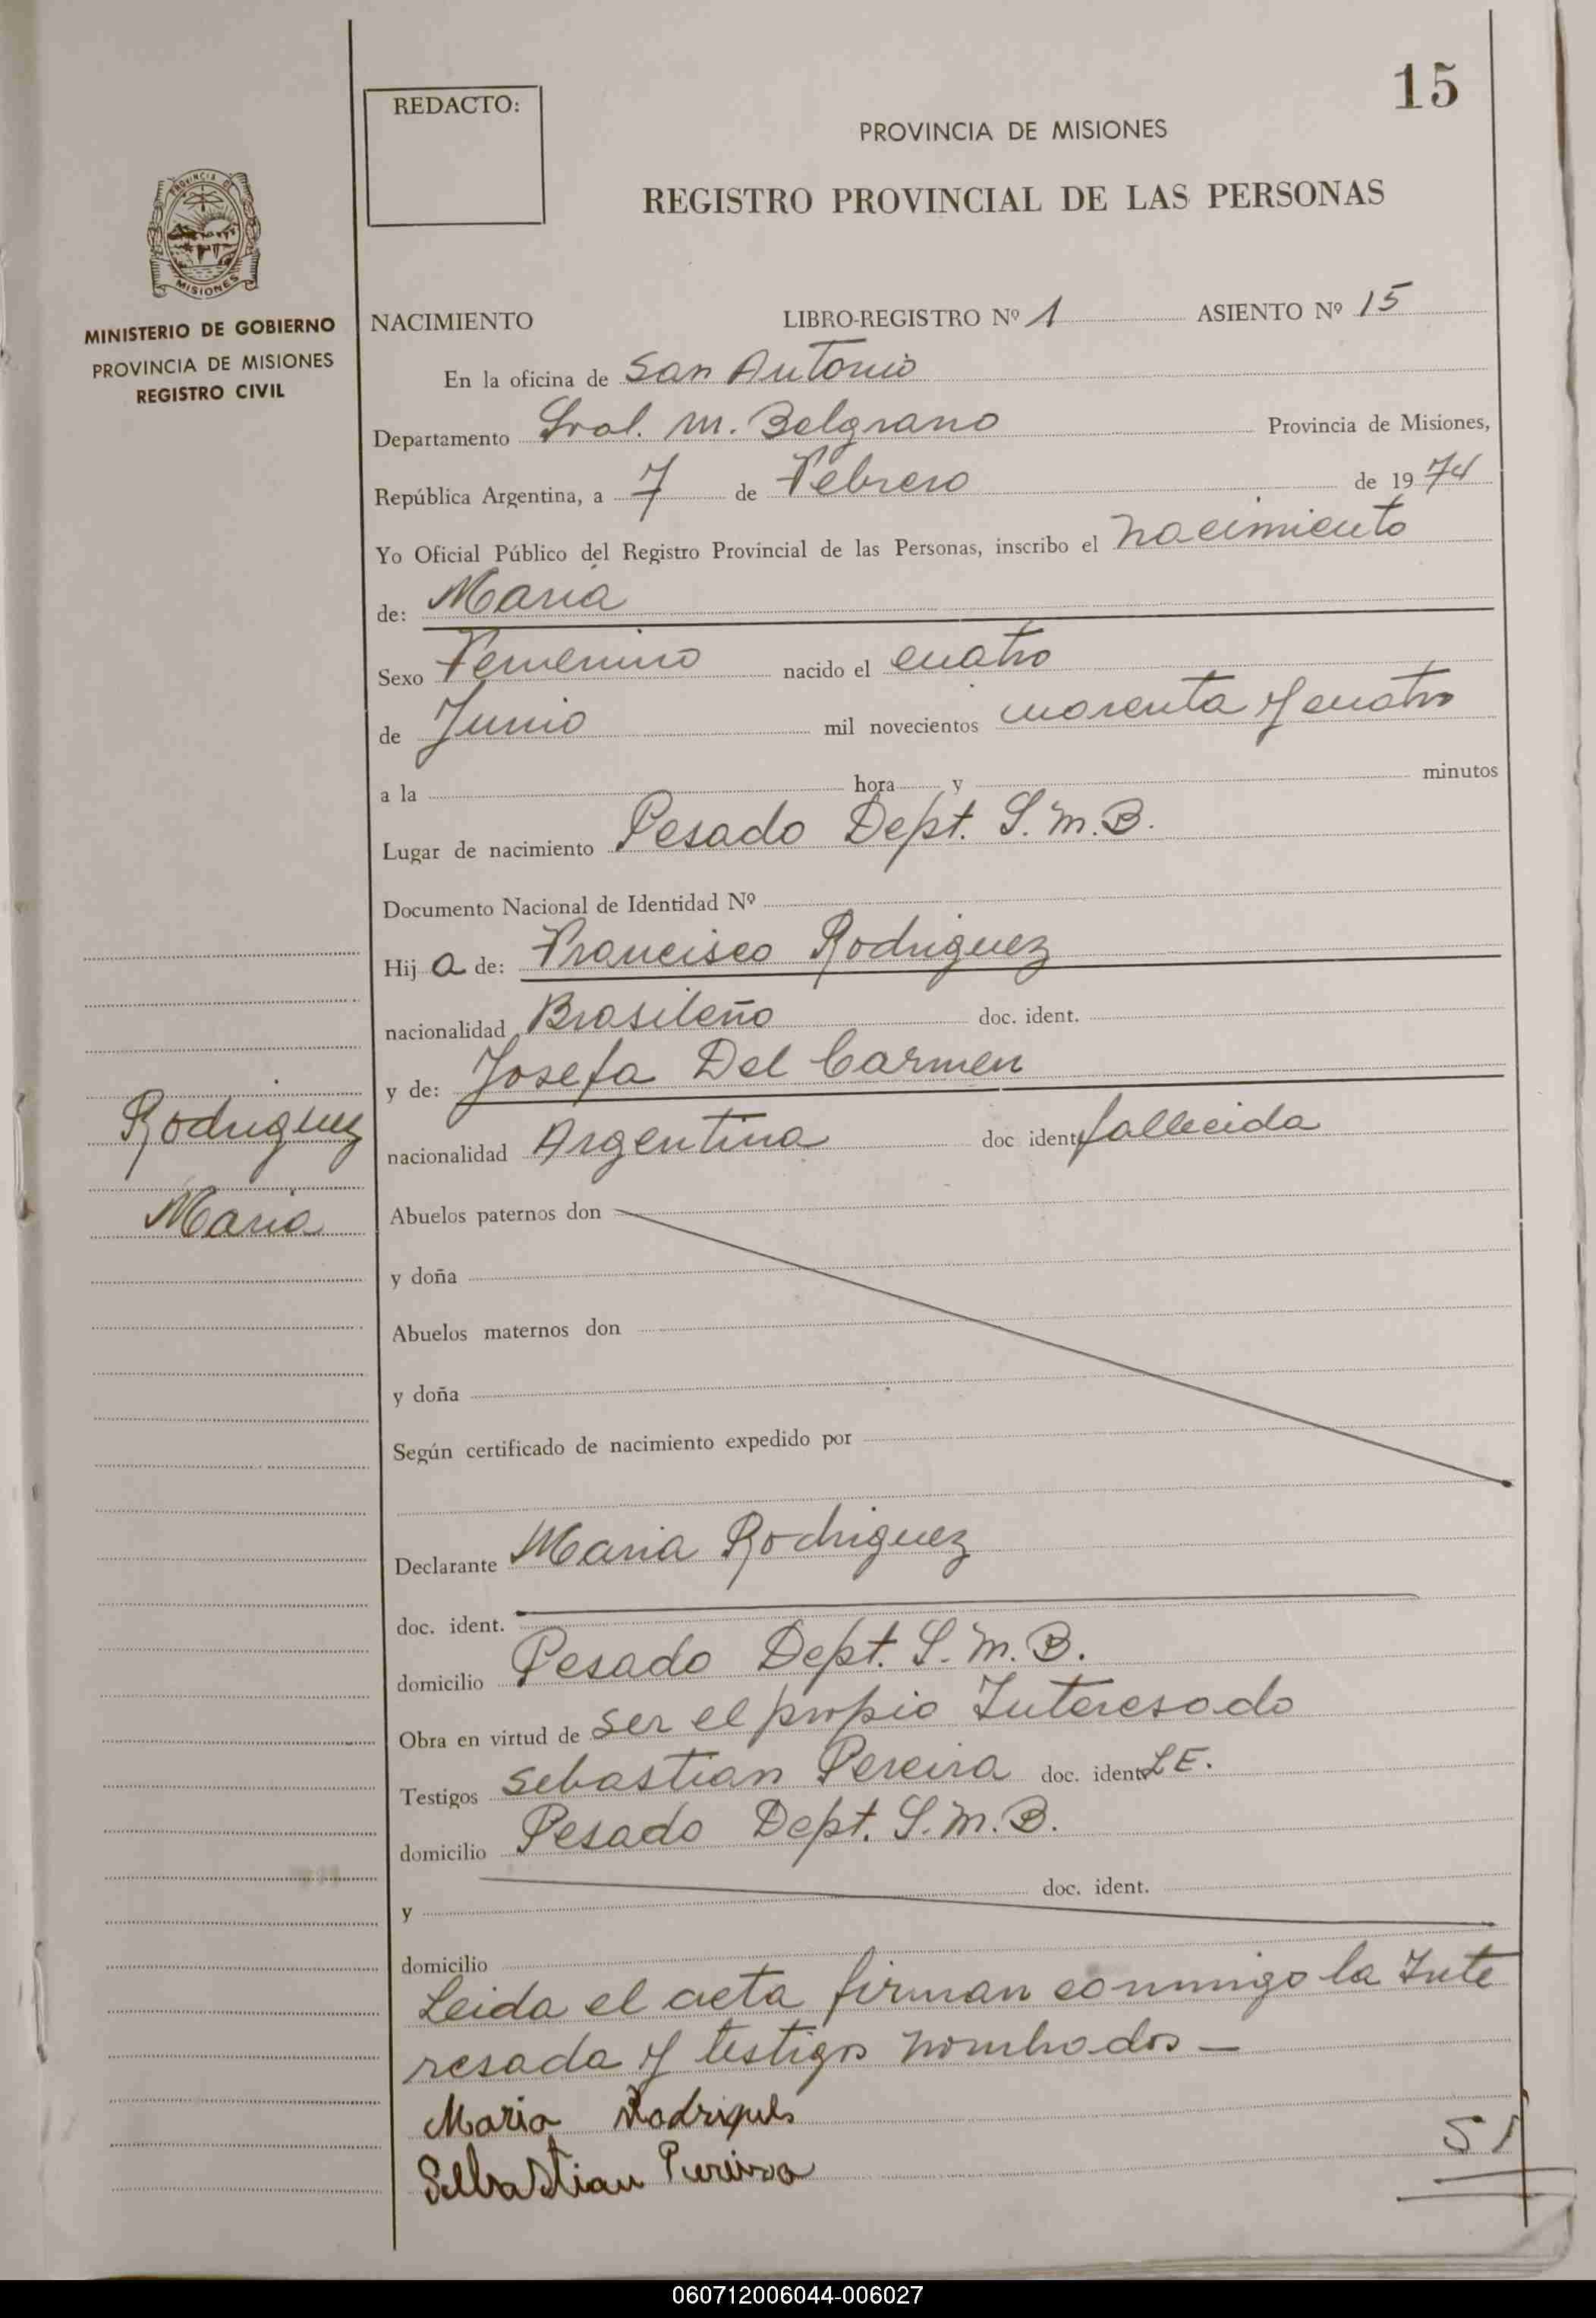 15
REDACTO:
PROVINCIA DE MISIONES
REGISTRO PROVINCIAL DE LAS PERSONAS
PROVINCIA DE
MISIONES
MINISTERIO DE GOBIERNO
PROVINCIA DE MISIONES
REGISTRO CIVIL
NACIMIENTO LIBRO-REGISTRO Nº 1 ASIENTO Nº 15
En la oficina de San Antonio
Departamento Gral. M. Belgrano Provincia de Misiones,
República Argentina, a 7 de Febrero de 1974
Yo Oficial Público del Registro Provincial de las Personas, inscribo el nacimiento
de: Maria
Sexo Femenino nacido el cuatro
de Junio mil novecientos cuarenta y cuatro
a la hora y minutos
Lugar de nacimiento Pesado Dept. G.M.B.
Documento Nacional de Identidad Nº
Hij a de: Francisco Rodriguez
nacionalidad Brasileño doc. ident.
y de: Josefa Del Carmen
nacionalidad Argentina doc ident. fallecida
Rodriguez
Maria
Abuelos paternos don
y doña
Abuelos maternos don
y doña
Según certificado de nacimiento expedido por
Declarante Maria Rodriguez
doc. ident.
domicilio Pesado Dept. G.M.B.
Obra en virtud de ser el propio Interesado
Testigos Sebastian Pereira doc. ident. L.E.
domicilio Pesado Dept. G.M.B.
y doc. ident.
domicilio
Leida el acta firman conmigo la Inte
resada y testigos nombrados —
Maria Rodrigues
Sebastian Pereira
51
060712006044-006027